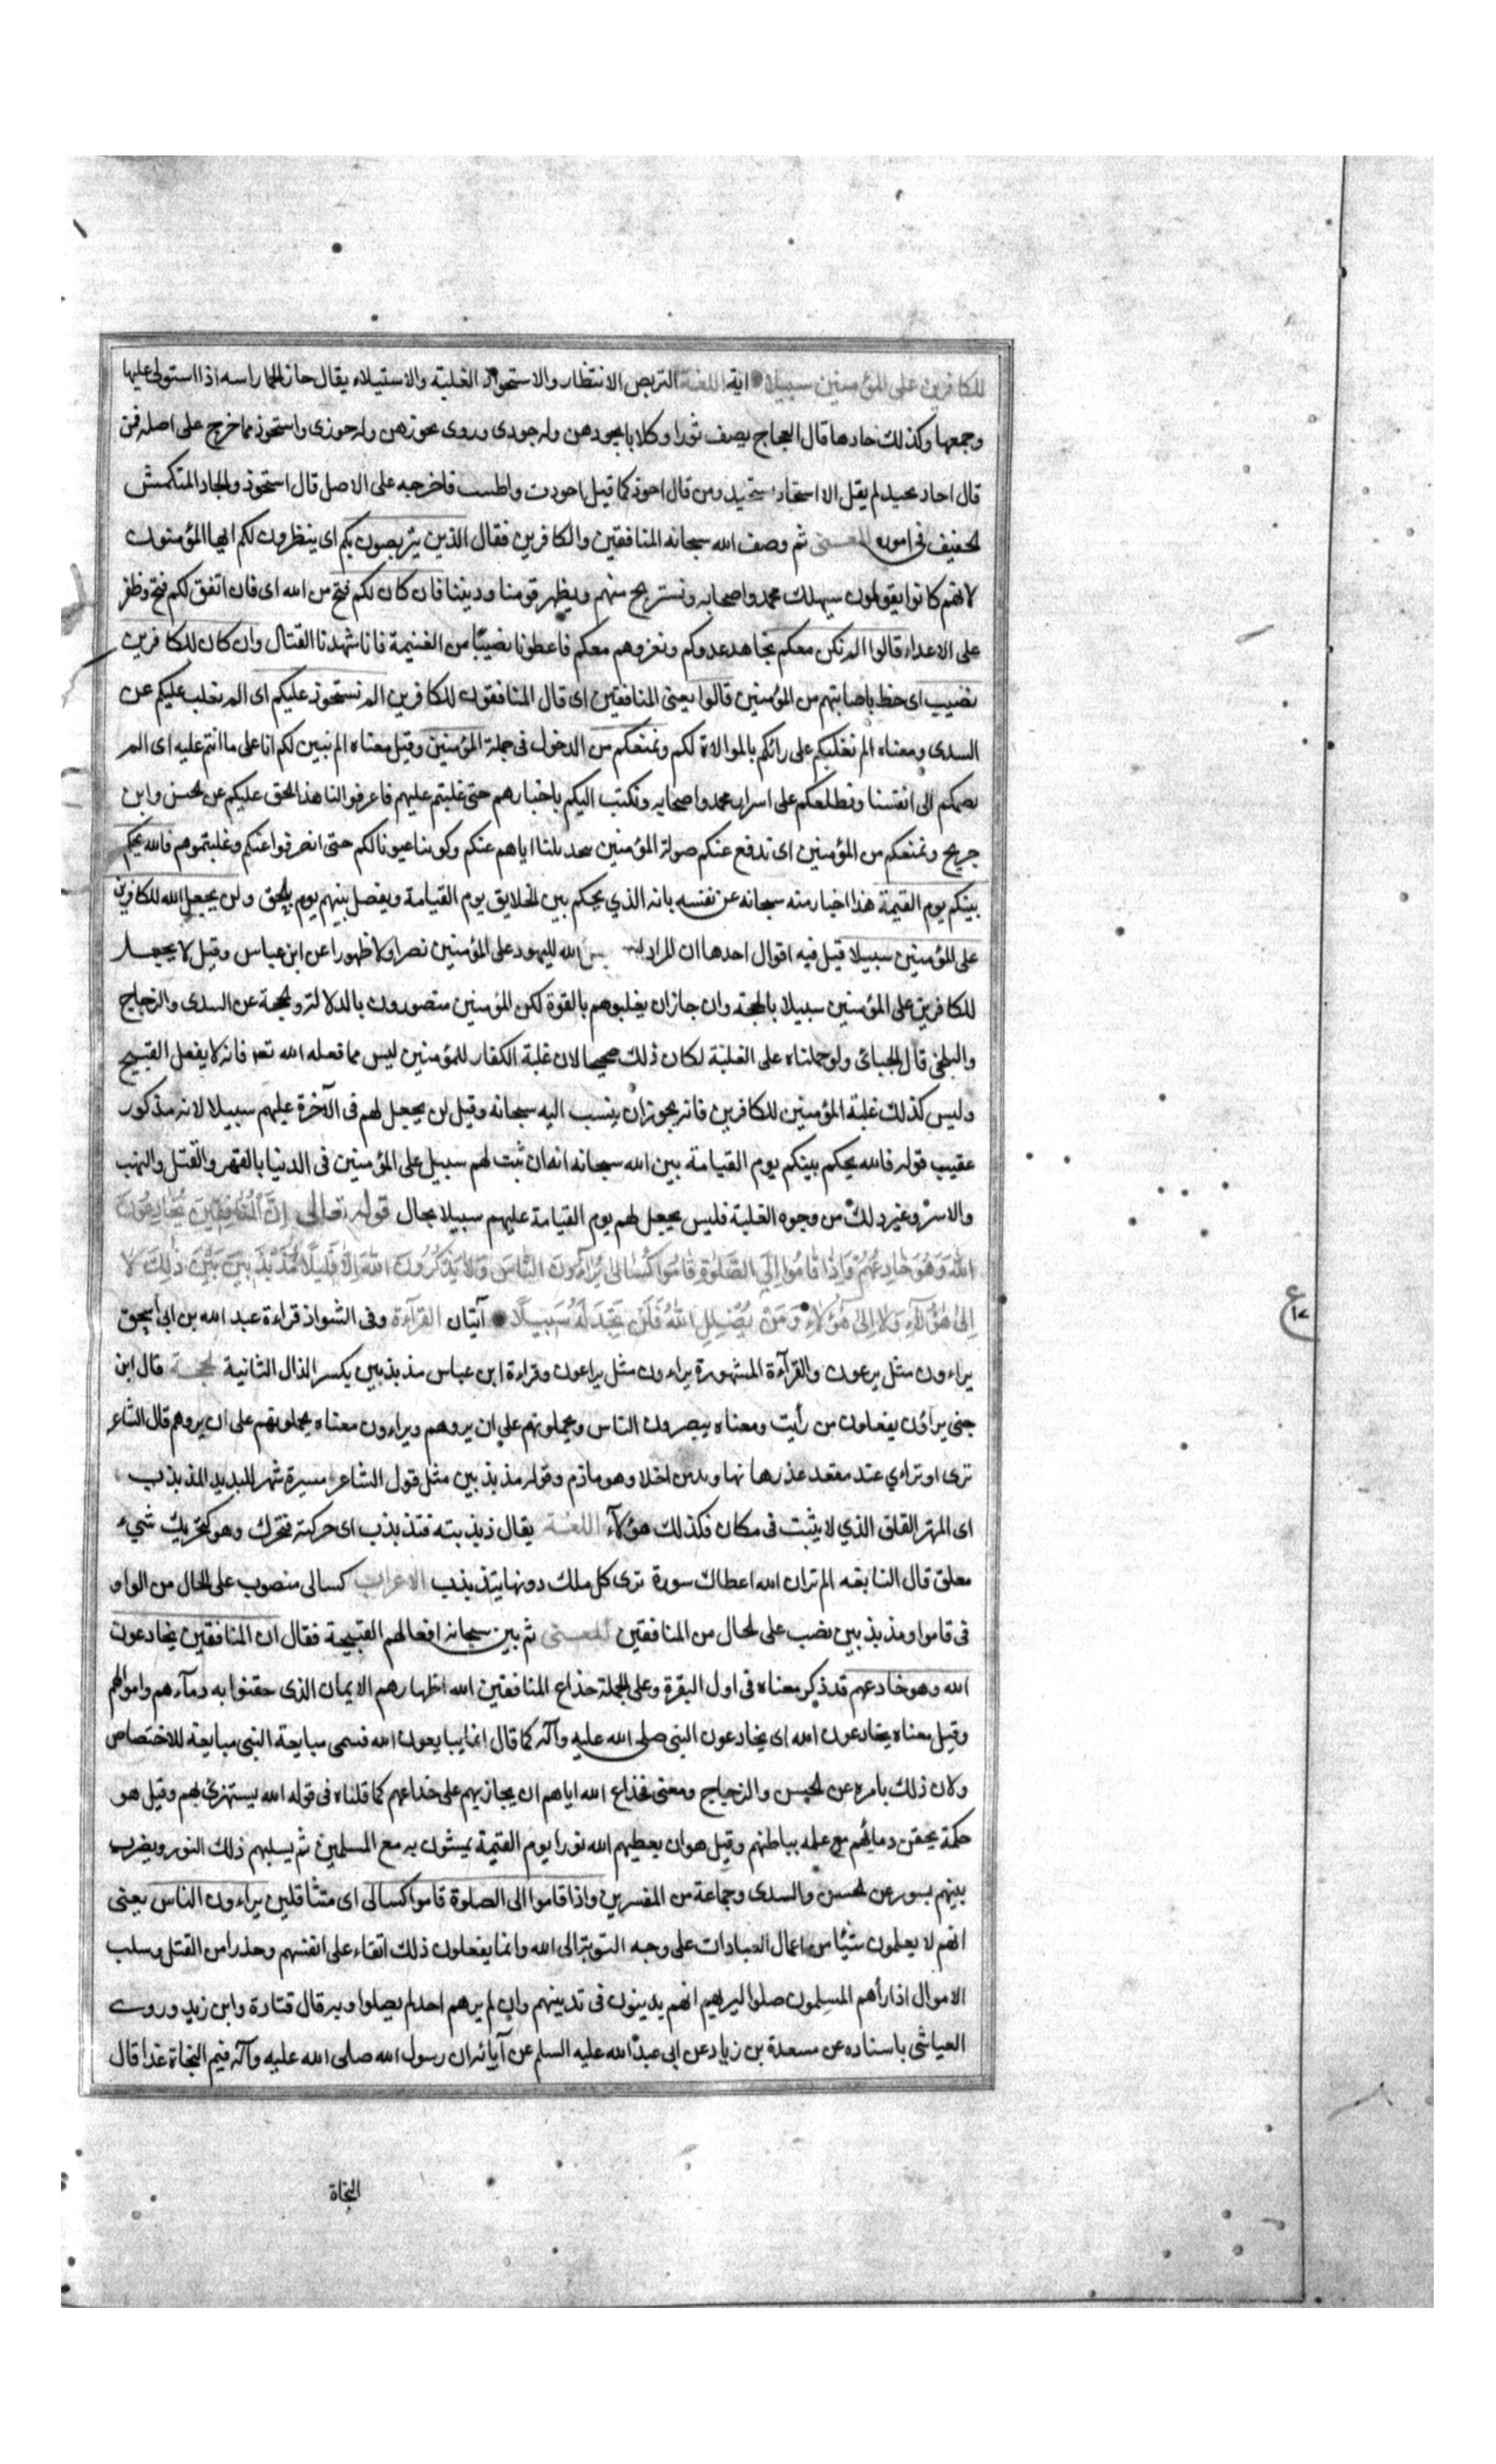 للكافرين على المؤمنين سبيلا اية اللغة التربص الانتظار والاستحواذ الغلبة والاستيلاء يقال حاذ الحمار اسه اذا استولى عليها
وجمعها وكذلك حادها قال العجاج يصف ثورا وكلابا يحوذهن وله حوذى وروى يحوزهن وله حوزى واستحوذ مما خرج على اصله فمن
قال احاذ يحيذ لم يقل الا استحاذ يستحيذ ومن قال احوذ كما قيل احوذت واطيبت فاخرجه على الاصل قال استحوذ والحاد المتكمش
الخفيف فى اموره المعنى ثم وصف الله سبحانه المنافقين والكافرين فقال الذين يتربصون بكم اى ينظرون لكم ايها المؤمنون
لانهم كانوا يقولون سيهلك محمد واصحابه ونستريح منهم ويظهر قومنا وديننا فان كان لكم فتح من الله اى فان اتفق لكم فتح وظفر
على الاعداء قالوا الم نكن معكم نجاهد عدوكم ونغزوهم معكم فاعطونا نصيبا من الغنيمة فانا شهدنا القتال وان كان للكافرين
نصيب اى حظ باصابتهم من المؤمنين قالوا يعنى المنافقين اى قال المنافقون للكافرين الم نستحوذ عليكم اى الم نغلب عليكم عن
السدى ومعناه الم نغلبكم على رائكم بالموالاة لكم ونمنعكم من الدخول فى جملة المؤمنين وقيل معناه الم نبين لكم انا على ما انتم عليه اى الم
نضمكم الى انفسنا ونطلعكم على اسرار محمد واصحابه ونكتب اليكم باخبارهم حتى غلبتم عليهم فاعرفوا لنا هذا الحق عليكم عن الحسن وابن
جريج ونمنعكم من المؤمنين اى ندفع عنكم صولة المؤمنين بتحديلنا اياهم عنكم وكوننا عيونا لكم حتى انصرفوا عنكم وغلبتموهم فالله يحكم
بينكم يوم القيمة هذا اخبار منه سبحانه عن نفسه بانه الذي يحكم بين الخلايق يوم القيامة ويفصل بينهم يوم بالحق ولن يجعل الله للكافرين
على المؤمنين سبيلا قيل فيه اقوال احدها ان المراد الله لليهود على المؤمنين نصرا ولا ظهورا عن ابن عباس وقيل لا يجعل
للكافرين على المؤمنين سبيلا بالحجة وان جاز ان يغلبوهم بالقوة لكن المؤمنين منصورون بالدلالة والحجة عن السدى والزجاج
والبلخى قال الجبائى ولو حملناه على الغلبة لكان ذلك صحيحا لان غلبة الكفار للمؤمنين ليس مما فعله الله تع فانه لا يفعل القبيح
وليس كذلك غلبة المؤمنين للكافرين فانه يجوز ان ينسب اليه سبحانه وقيل لن يجعل لهم فى الآخرة عليهم سبيلا لانه مذكور
عقيب قوله فالله يحكم بينكم يوم القيامة بين الله سبحانه انه ان ثبت لهم سبيل على المؤمنين فى الدنيا بالقهر والقتل والنهب
والاسر وغير ذلك من وجوه الغلبة فليس يجعل لهم يوم القيامة عليهم سبيلا بحال قوله تعالى اِنَّ الْمُنافِقِينَ يُخادِعُونَ
اللهَ وَهُوَ خادِعُهُمْ وَاِذا قامُوا اِلَى الصَّلوٰةِ قامُوا كُسالىٰ يُراءُونَ النَّاسَ وَلا يَذْكُرُونَ اللهَ اِلَّا قَلِيلًا مُذَبْذَبِينَ بَيْنَ ذٰلِكَ لا
اِلىٰ هٰؤُلاءِ وَلا اِلىٰ هٰؤُلاءِ وَمَنْ يُضْلِلِ اللهُ فَلَنْ تَجِدَ لَهُ سَبِيلًا آيتان القرآءة وفى الشواذ قراءة عبد الله بن ابى اسحق
يراءون مثل يرعون والقرآءة المشهورة يراءون مثل يراعون وقراءة ابن عباس مذبذبين بكسر الذال الثانية الحجة قال ابن
جنى يرأون يفعلون من رأيت ومعناه يبصرون الناس ويحملونهم على ان يروهم ويراءون معناه يحملونهم على ان يروهم قال الشاعر
ترى او تراءي عند معقد غذرها وقوله مذبذبين مثل قول الشاعر مسيرة شهر للبريد المذبذب
اى المهتز القلق الذي لا يثبت فى مكان فكذلك هؤلآء اللغة يقال ذبذبته فتذبذب اى حركته فتحرك وهو كتحريك شىء
معلق قال النابغه الم تر ان الله اعطاك سورة ترى كل ملك دونها يتذبذب الاعراب كسالى منصوب على الحال من الواو
فى قاموا ومذبذبين نصب على الحال من المنافقين المعنى ثم بين سبحانه افعالهم القبيحة فقال ان المنافقين يخادعون
الله وهو خادعهم قد ذكر معناه فى اول البقرة وعلى الجملة خداع المنافقين الله اظهارهم الايمان الذى حقنوا به دمآءهم واموالهم
وقيل معناه يخادعون الله اى يخادعون النبى صلى الله عليه وآله كما قال انما يبايعون الله فسمى مبايعة النبى مبايعة للاختصاص
ولان ذلك بامره عن الحسن والزجاج ومعنى خداع الله اياهم ان يجازيهم على خداعهم كما قلناه فى قوله الله يستهزئ بهم وقيل هو
حكمة بحقن دمائهم مع علمه بباطنهم وقيل هو ان يعطيهم الله نورا يوم القيمة يمشون به مع المسلمين ثم يسلبهم ذلك النور ويضرب
بينهم بسور عن الحسن والسدى وجماعة من المفسرين واذا قاموا الى الصلوة قاموا كسالى اى متثاقلين يراءون الناس يعنى
انهم لا يعملون شيئا من اعمال العبادات على وجه القربة الى الله وانما يفعلون ذلك اتقاء على انفسهم وحذرا من القتل وسلب
الاموال اذا رأهم المسلمون صلوا ليرهم انهم يدينون فى تدينهم وان لم يرهم احد لم يصلوا وبه قال قتادة وابن زيد وروى
العياشى باسناده عن مسعدة بن زياد عن ابى عبد الله عليه السلم عن آبائه ان رسول الله صلى الله عليه وآله فيم النجاة غدا قال
النجاة